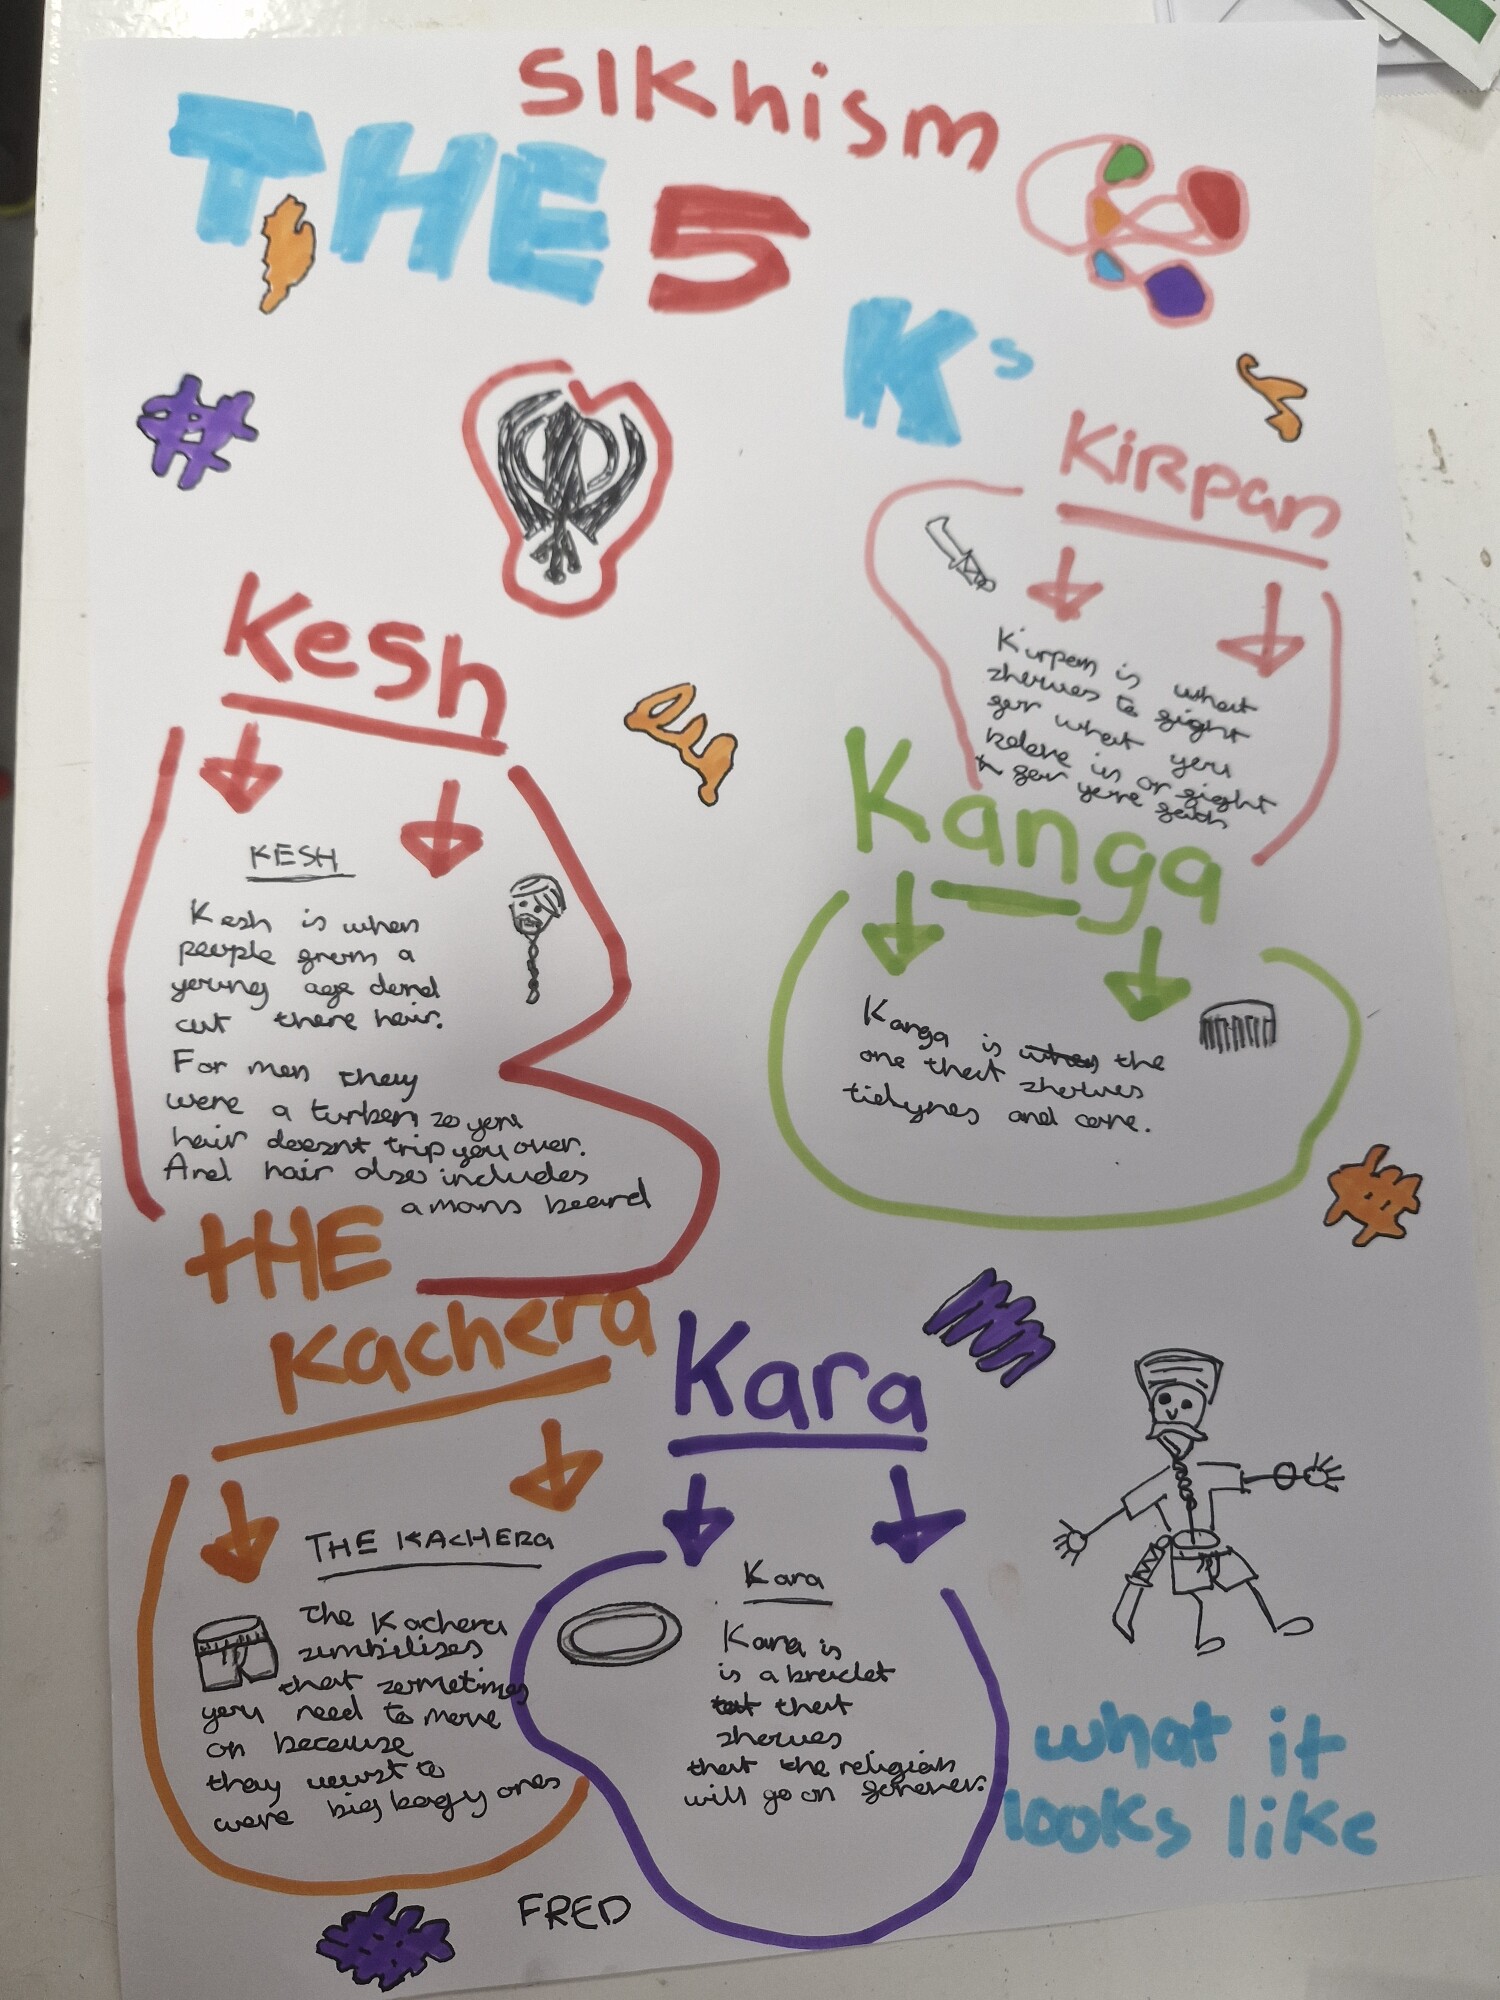 SIKhism
THE 5
Ks
KiRpan
Kirpan is what
showes to fight
for what you
beleve in or fight
for youre faith
Kesh
KESH
Kesh is when
people from a
young age dond
cut there hair.
For men they
were a turben so you
hair doesnt trip you over.
And hair also includes
a mans beard
Kanga
Kanga is when the
one that showes
tidynes and care.
tHE
Kachera
THE KACHERA
The Kachera
simbilises
that sometimes
you need to move
on because
they uest to
were big bagy ones
Kara
Kara
Kara is
is a braclet
tat that
showes
that the religion
will go on forever.
what it
looks like
FRED